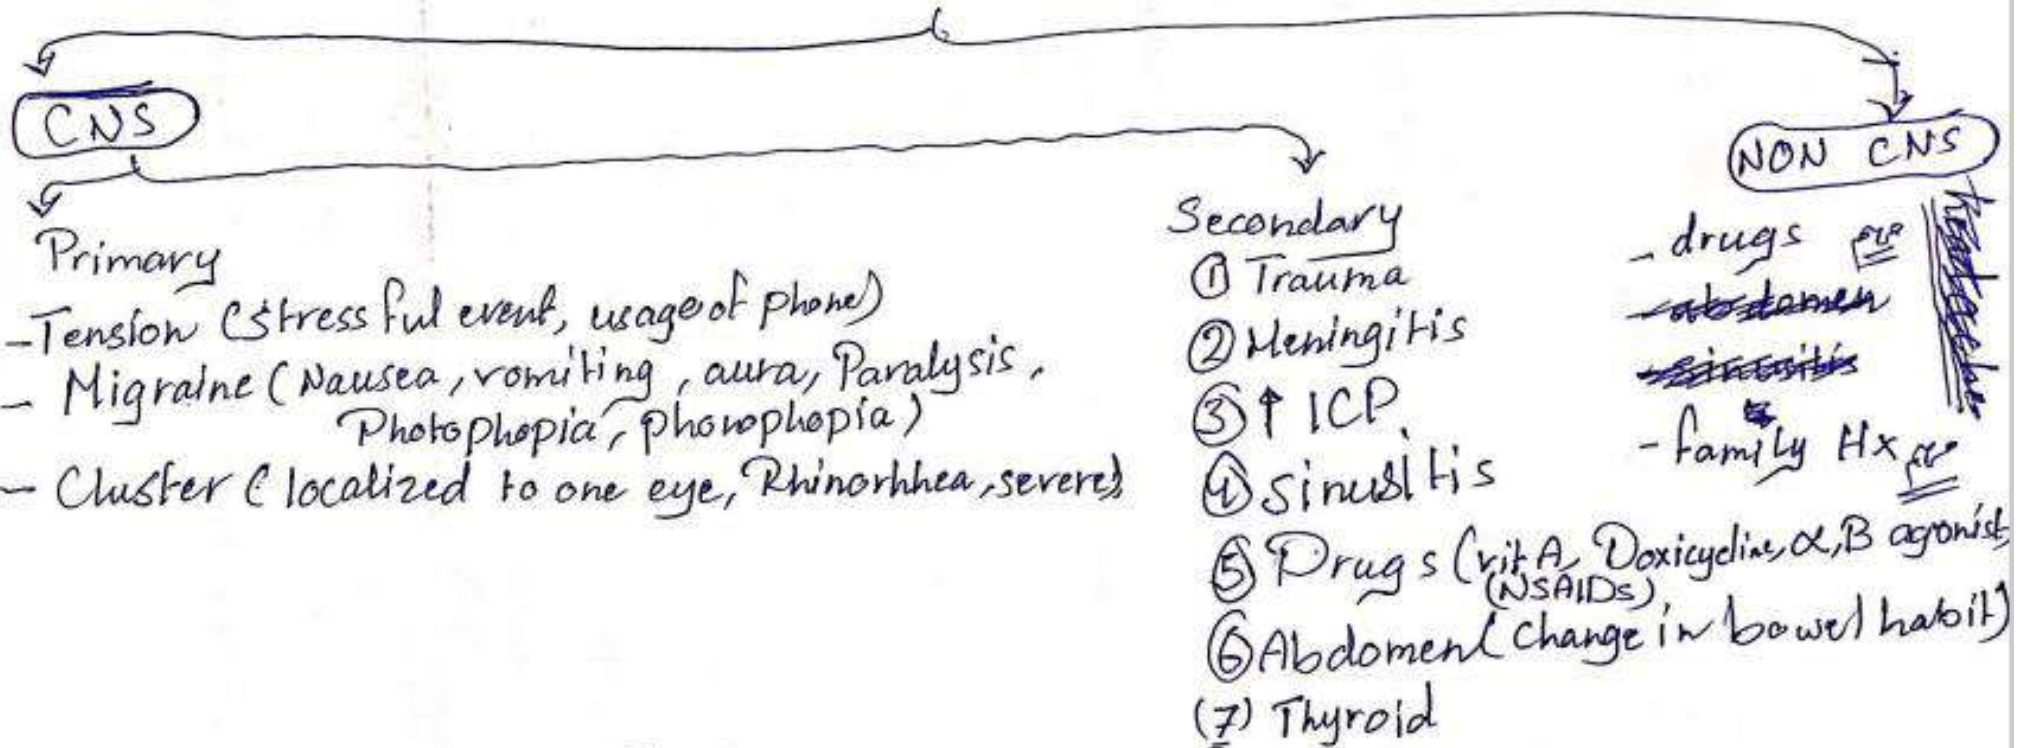 CNS
NON CNS
Primary
- Tension (stressful event, usage of phone)
- Migraine (Nausea, vomiting, aura, Paralysis,
Photophopia, phonophopia)
- Cluster (localized to one eye, Rhinorhhea, severe)
Secondary
① Trauma
② Meningitis
③ ↑ ICP.
④ Sinusitis
⑤ Drugs (vit A, Doxicycline, α, B agonist,
(NSAIDs)
⑥ Abdomen (Change in bowel habit)
(7) Thyroid
- drugs
- abdomen
- sinusitis
- family Hx